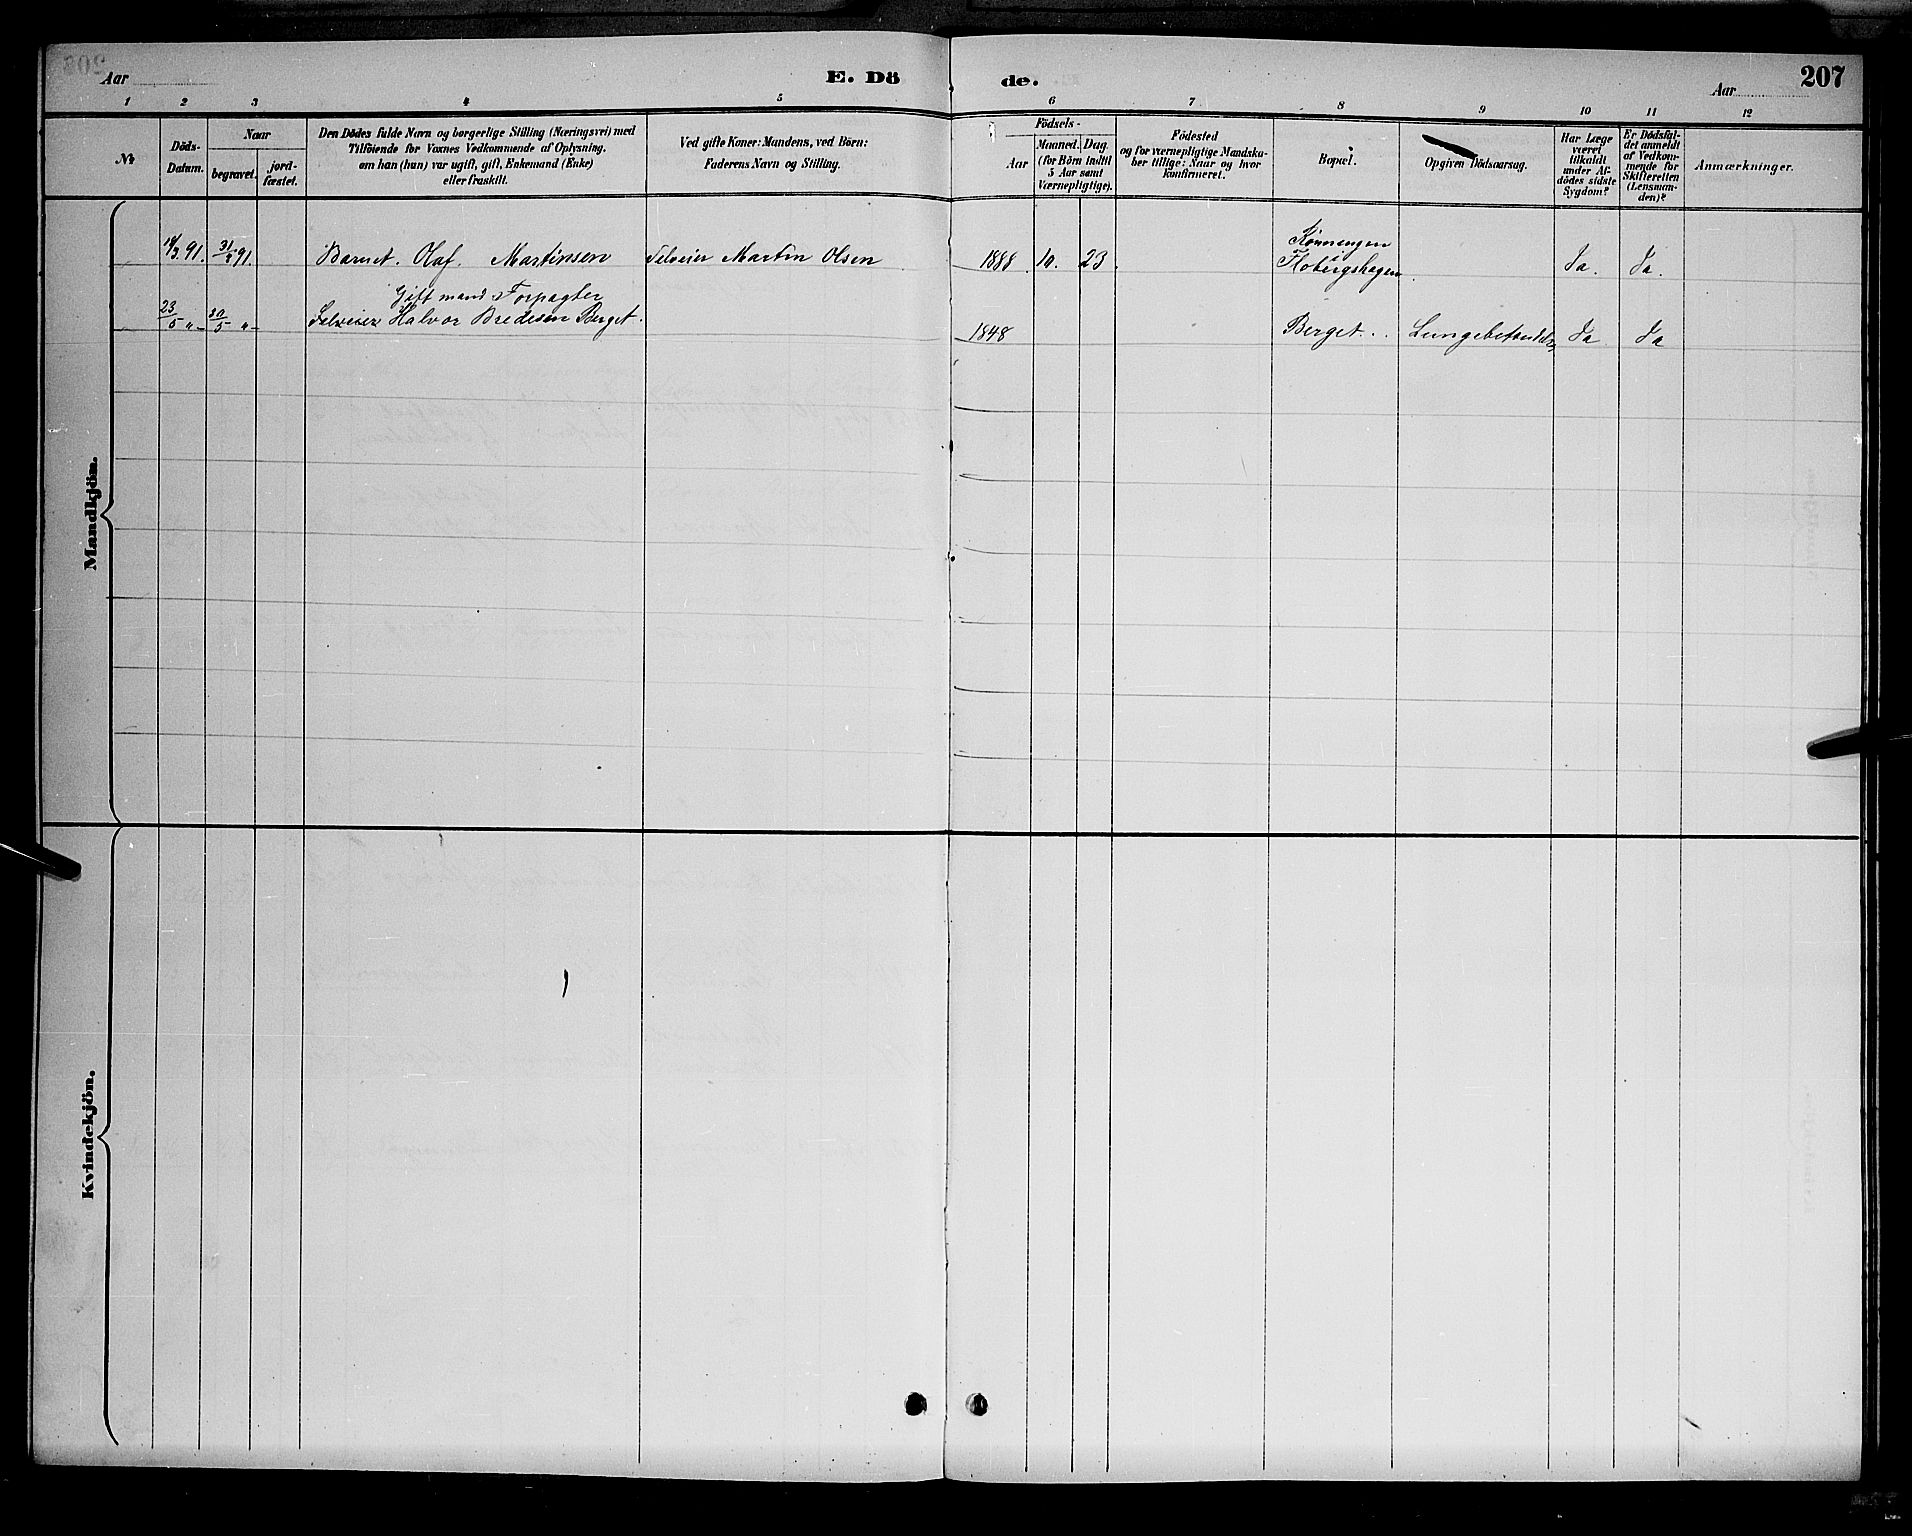 Aar
E. Dö
de.
Aar
207
1 2 3 4 5 6 7 8 9 10 11 12
No
Döds-
Datum.
Naar
begravet.
jord-
fæstet.
Den Dödes fulde Navn og borgerlige Stilling (Næringsvei) med
Tilföiende for Voxnes Vedkommende af Oplysning,
om han (hun) var ugift, gift, Enkemand (Enke)
eller fraskilt.
Ved gifte Koner: Mandens, ved Börn:
Faderens Navn og Stilling.
Födsels-
Aar
Maaned.
Dag.
(for Börn indtil
5 Aar samt
Værnepligtige).
Födested
og for værnepligtige Mandska-
ber tillige: Naar og hvor
konfirmeret.
Bopæl.
Opgiven Dödsaarsag.
Har Læge
været
tilkaldt
under Af-
dödes sidste
Sygdom?
Er Dödsfal-
det anmeldt
af Vedkom-
mende for
Skifteretten
(Lensman-
den)?
Anmærkninger.
Mandkjön.
91. 91. Barnet. Olaf. Martinsen Selveier Martin Olsen 1888. 10. 23. Flobergshagen Ja. Ja.
Gift mand Forpagter
23/5 "- 30/5 "- Selveier Halvor Bredesen Berget. 1848 Berget. Ja Ja
Kvindekjön.